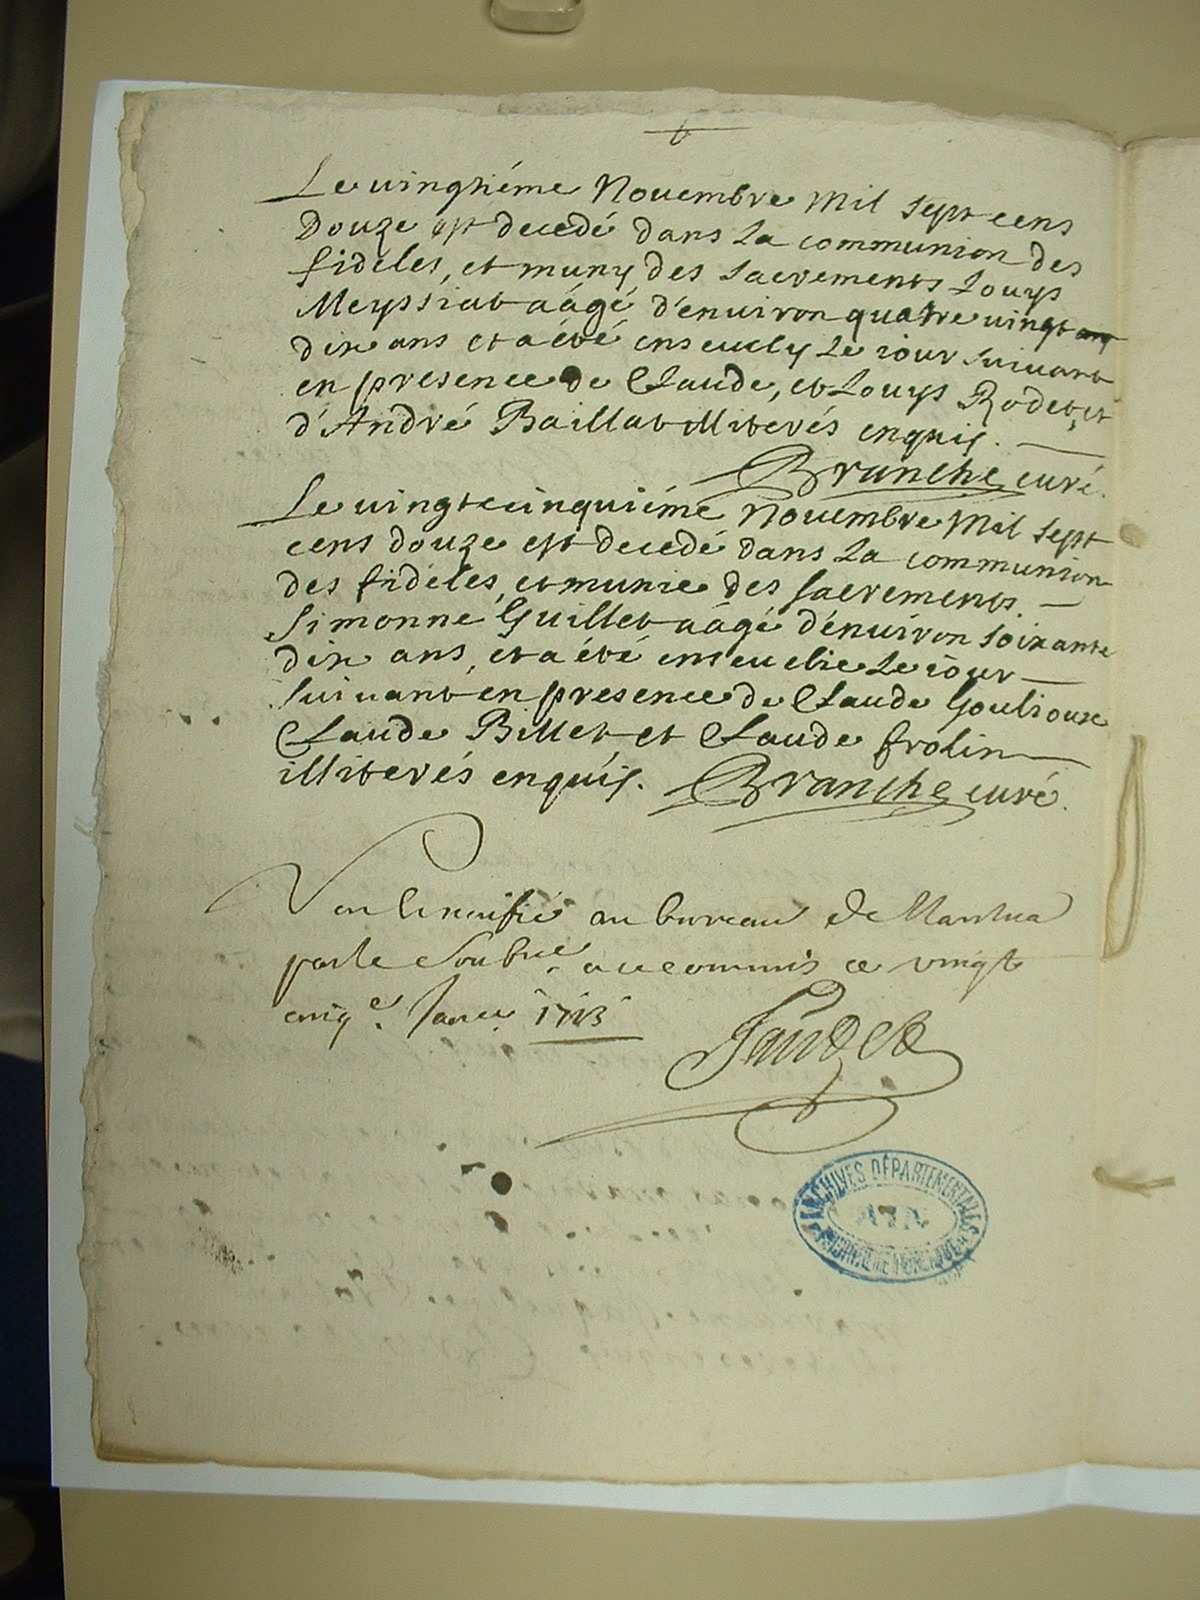 Le vingtiéme Novembre Mil sept cens
Douze est decedé dans la communion des
fidéles, et muny des sacrements Louys
Meyssiat aâgé d'énuiron quatre vingt
dix ans et a été enseuely le iour suiuant
en presence de Claude, et Louys Rodet, et
d'André Baillat illiterés enquis.
Branche curé.
Le vingtcinquiéme Novembre Mil sept
cens douze est decedé dans la communion
des fidéles, et munie des sacrements
Simonne Guillet aâgé d'énuiron soixante
dix ans, et a été enseuelie le iour
suiuant en presence de Claude Goulioux
Claude Billet et Claude frolin
illiterés enquis. Branche curé.
au bureau de Nantua
par le commis ce vingt
cinqe. 1713
ARCHIVES DÉPARTEMENTALES
AIN